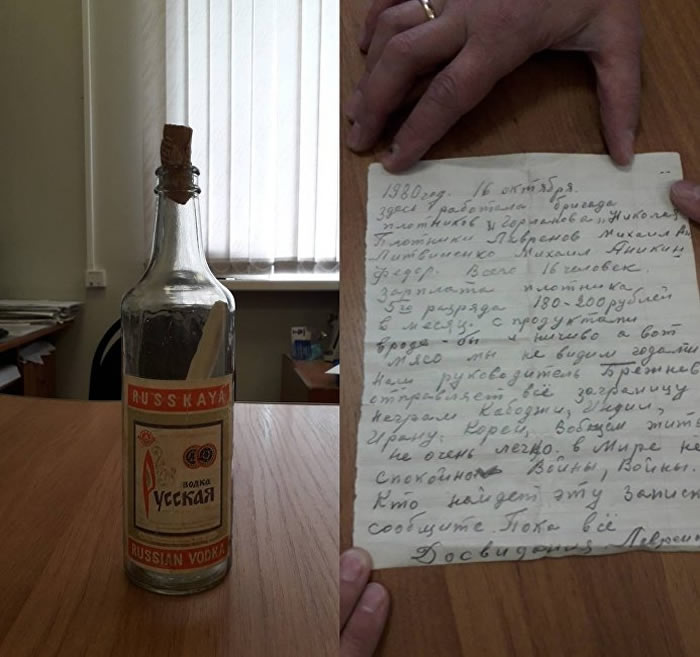 RUSSKAYA
водка
Русская
RUSSIAN VODKA
1980 год. 16 октября.
здесь работала бригада
плотников Горланова Николая
Плотники Лавренов Михаил
Литвиненко Михаил Аникин
Федор. Всего 16 человек.
Зарплата плотника
5го разряда 180-200 рублей
в месяц. с продуктами
вроде-бы и ничиво а вот
мясо мы не видим годами
нам руководитель Брежнев
отправляет всё заграницу
неграм Кабоджи, Индии,
Ирану, Кореи, Вобщем жить
не очень легко. в Мире не
спокойно Войны, Войны.
Кто найдет эту записк
сообщите. Пока всё
Досвидания Лаврено